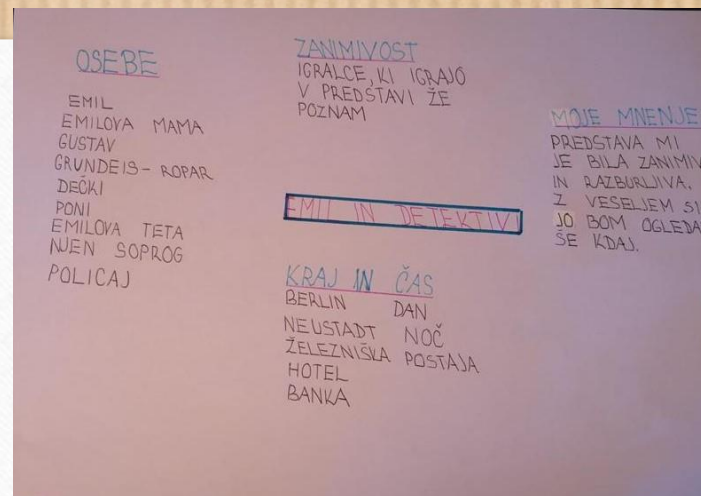 OSEBE
EMIL
EMILOVA MAMA
GUSTAV
GRUNDEIS - ROPAR
DEČKI
PONI
EMILOVA TETA
NJEN SOPROG
POLICAJ
ZANIMIVOST
IGRALCE, KI IGRAJO
V PREDSTAVI ŽE
POZNAM
EMIL IN DETEKTIVI
KRAJ IN ČAS
BERLIN DAN
NEUSTADT NOČ
ŽELEZNIŠKA POSTAJA
HOTEL
BANKA
MOJE MNENJE
PREDSTAVA MI
JE BILA ZANIMIV
IN RAZBURLJIVA.
Z VESELJEM SI
JO BOM OGLEDA
ŠE KDAJ.